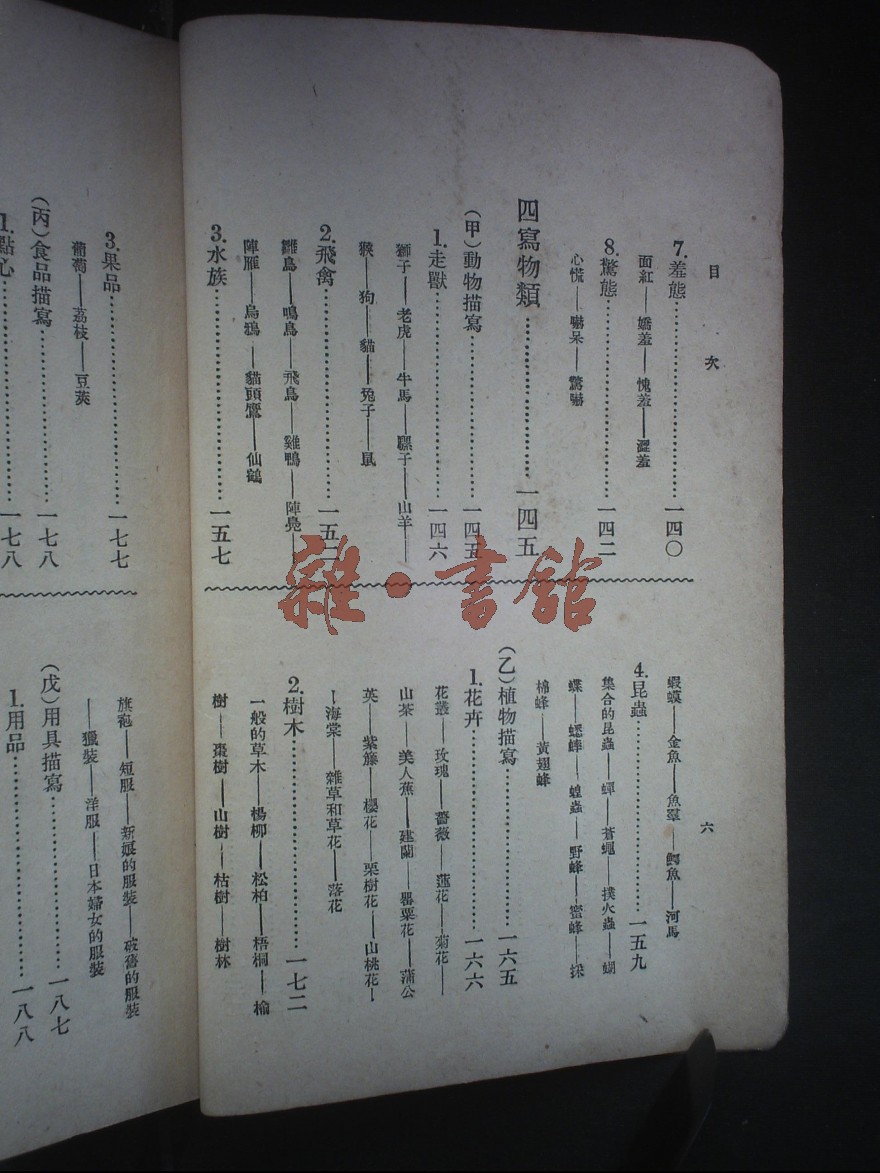 目次
六
7.羞態……一四〇
面紅——嬌羞——愧羞——澀羞
8.驚態……一四二
心慌——嚇呆——驚嚇
四寫物類……一四五
(甲)動物描寫……一四五
1.走獸……一四六
獅子——老虎——牛馬——騾子——山羊——
猴——狗——貓——兔子——鼠
2.飛禽……一五二
雛鳥——鳴鳥——飛鳥——雞鴨——陣鳧——
陣雁——烏鴉——貓頭鷹——仙鶴
3.水族……一五七
蝦蟆——金魚——魚羣——鱷魚——河馬
4.昆蟲……一五九
集合的昆蟲——蟬——蒼蠅——撲火蟲——蝴
蝶——蟋蟀——蝗蟲——野蜂——蜜蜂——採
棉蜂——黃翅蜂
(乙)植物描寫……一六五
1.花卉……一六六
花叢——玫瑰——薔薇——蓮花——菊花——
山茶——美人蕉——建蘭——罌粟花——蒲公
英——紫籐——櫻花——栗樹花——山桃花—
—海棠——雜草和草花——落花
2.樹木……一七二
一般的草木——楊柳——松柏——梧桐——楡
樹——棗樹——山樹——枯樹——樹林
3.果品……一七七
葡萄——荔枝——豆莢
(丙)食品描寫……一七八
1.點心……一七八
旗袍——短服——新娘的服裝——破舊的服裝
——獵裝——洋服——日本婦女的服裝
(戊)用具描寫……一八七
1.用品……一八八
雜·書館